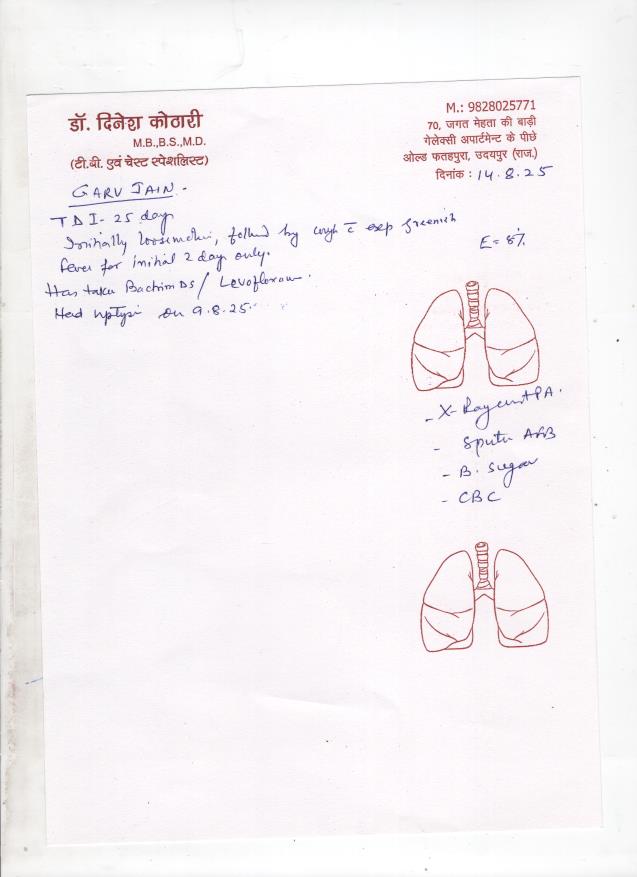 डॉ. दिनेश कोठारी
M.B.,B.S.,M.D.
(टी.बी. एवं चेस्ट स्पेशलिस्ट)
M.: 9828025771
70, जगत मेहता की बाड़ी
गेलेक्सी अपार्टमेन्ट के पीछे
ओल्ड फतहपुरा, उदयपुर (राज.)
दिनांक : 14.8.25
GARV JAIN -
TDI - 25 day
Initially, by cough c̄ exp greenish
fever for initial 2 day only.
Has taken Bactrim DS / Levofloxacin.
Had on 9.8.25
E = 8%
- X-Ray chest PA.
- Sputum AFB
- B. Sugar
- CBC